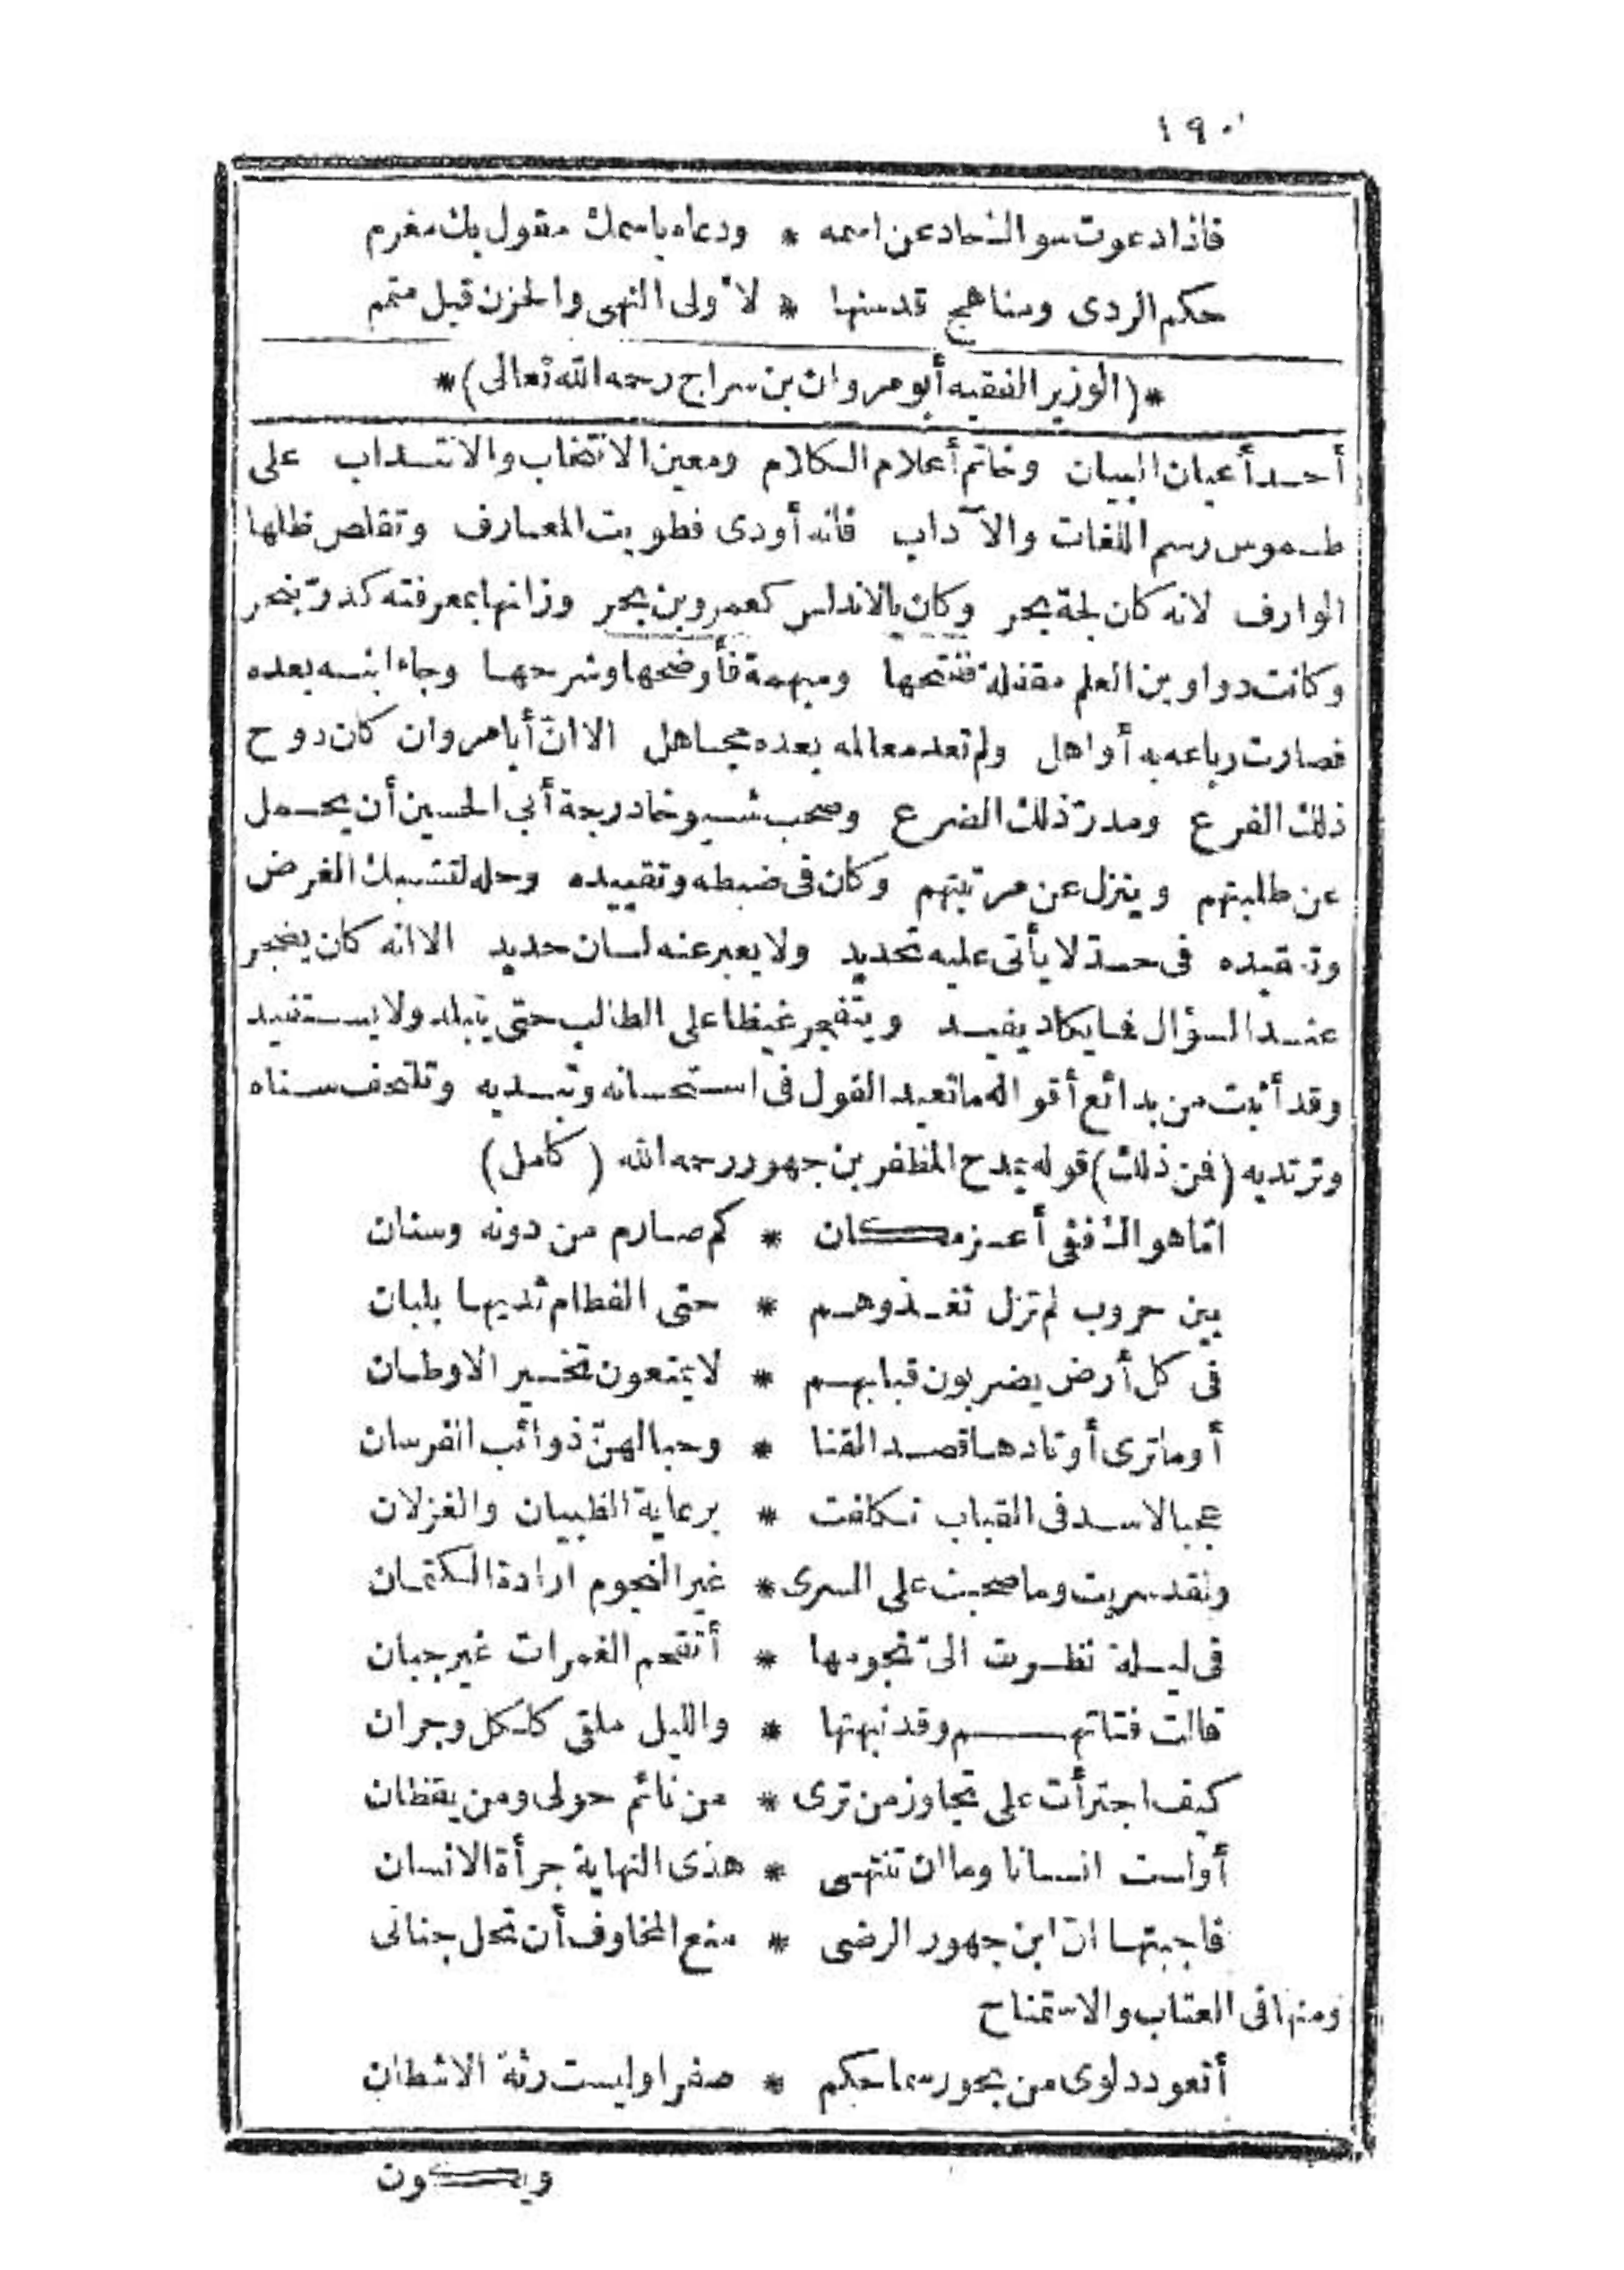 ١٩٠
فاذا دعوت سوال حاد عن اسمه * ودعاه باسمك مقول بك مغرم
حكم الردى ومناهج قد سنها * لأولى النهى والحزن قبل متمم
*(الوزير الفقيه أبو مروان بن سراج رحمه الله تعالى)*
أحد أعيان البيان وخاتم أعلام الكلام ومعين الانتخاب والانتداب على
طموس رسم اللغات والآداب فانه أودى فطويت المعارف وتقلص ظلها
الوارف لانه كان لجة بحر وكان بالاندلس كعمرو بن بحر وزانها بمعرفته كدرّ بنحر
وكانت دواوين العلم مقفلة ففتحها ومبهمة فأوضحها وشرحها وجاء ابنه بعده
فصارت رباعه به أواهل ولم تعد معالمه بعده مجاهل الا انّ أبا مروان كان دوح
ذلك الفرع ومدرّ ذلك الضرع وصحب شيوخا درجة أبي الحسين أن يحمل
عن طلبتهم وينزل عن مرتبتهم وكان فى ضبطه وتقييده وحله لتشبيك الغرض
وتعقيده فى حدّ لا يأتى عليه تحديد ولا يعبر عنه لسان حديد الا انه كان يضجر
عند السؤال فما يكاد يفيد ويتفجر غيظا على الطالب حتى يتبلد ولا يستفيد
وقد أثبت من بدائع أقواله ما تعيد القول فى استحسانه وتبديه وتلتحف سناه
وترتديه (فمن ذلك) قوله يمدح المظفر بن جهور رحمه الله (كامل)
امّا هواك ففى أعز مكان * كم صارم من دونه وسنان
بين حروب لم تزل تغذوهم * حتى الفطام ثديها بلبان
فى كل أرض يضربون قبابهم * لا يمنعون تخير الاوطان
أوما ترى أوتادها قصد القنا * وحبالهنّ ذوائب الفرسان
عجبا لاسد فى القباب تكافت * برعاية الظبيان والغزلان
ولقد سريت وما صحبت على السرى * غير النجوم ارادة الكتمان
فى ليلة نظرت الىّ نجومها * أتقحم الغمرات غير جبان
قالت فتاتهم وقد نبهتها * والليل ملقى كلكل وجران
كيف اجترأت على تجاوز من ترى * من نائم حولى ومن يقظان
أولست انسانا وما ان تنتهى * هذى النهاية جرأة الانسان
فاجبتها انّ ابن جهور الرضى * منع المخاوف أن تحل جنانى
ومنها فى العتاب والاستمناح
أتعود دلوى من بحور سماحكم * صفرا وليست رثة الاشطان
ويكون